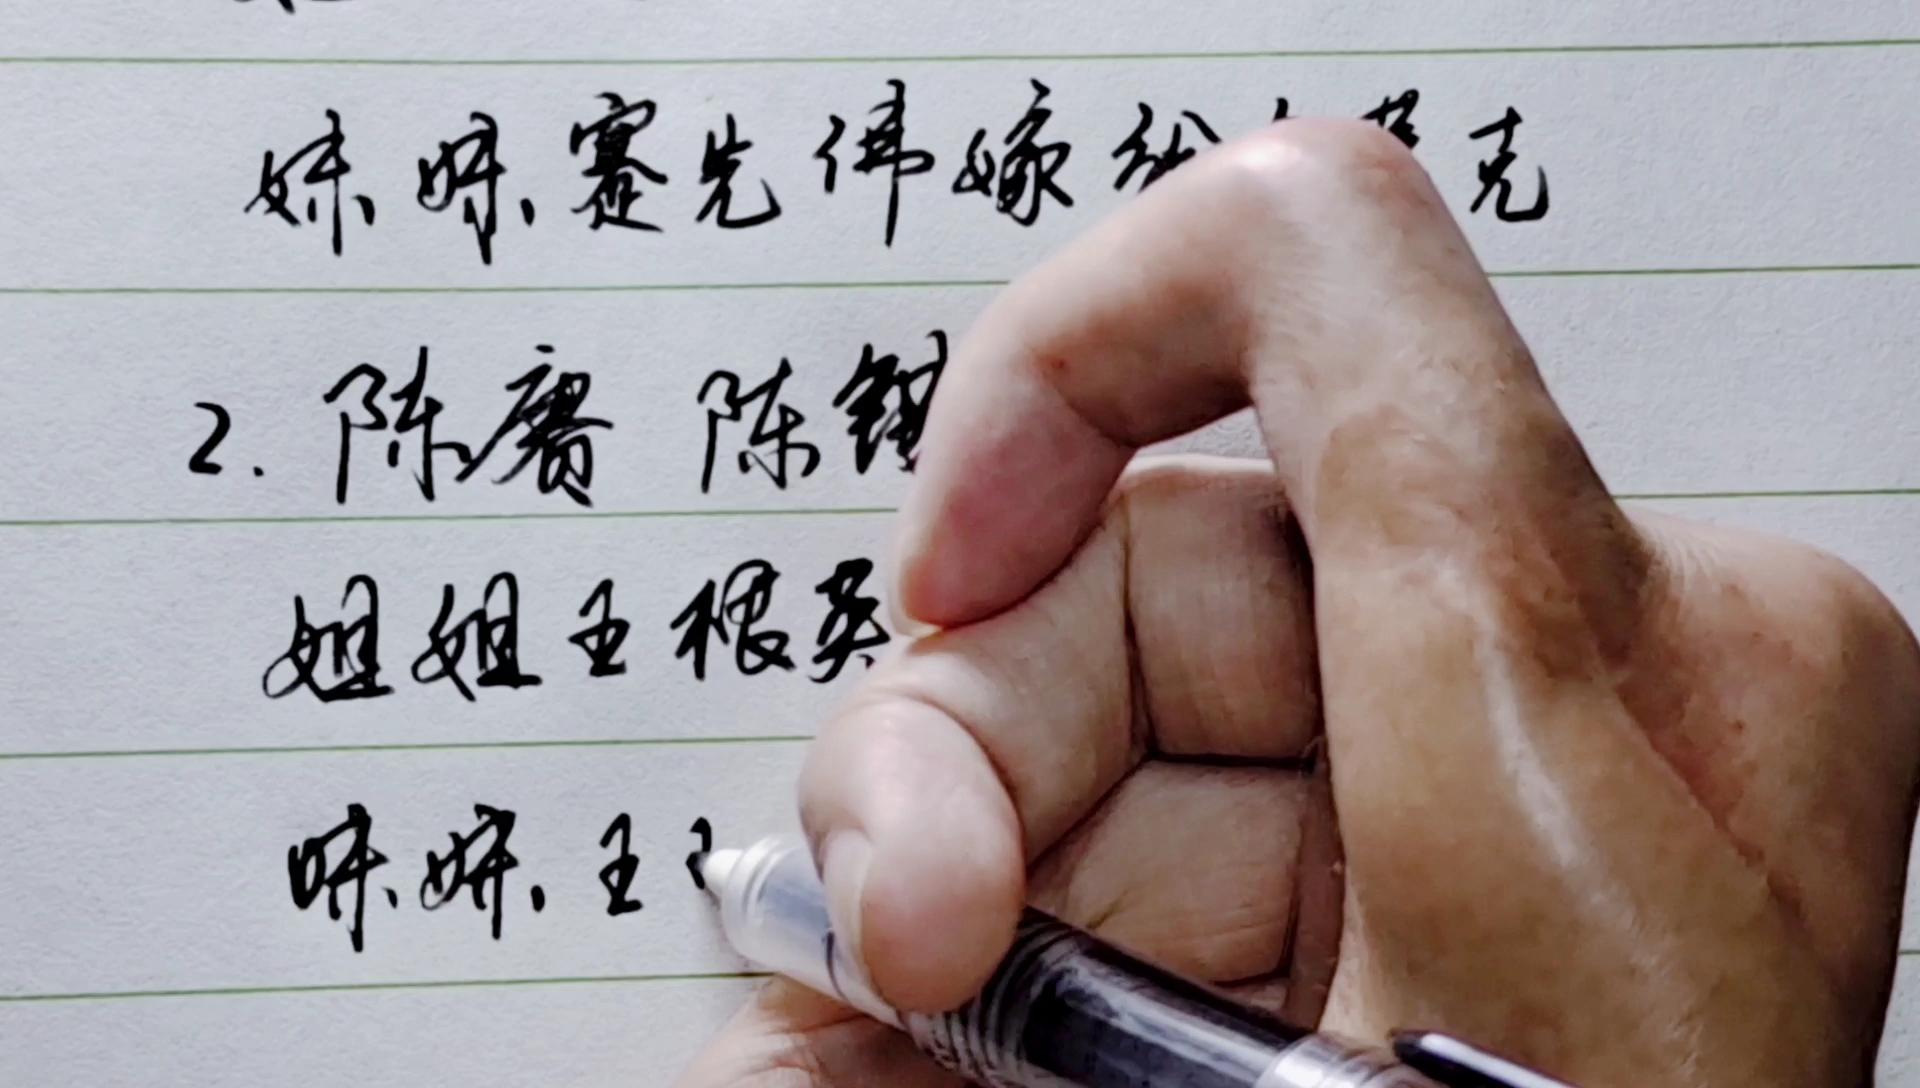 妹妹蹇先佛嫁给 克
2. 陈赓 陈锡
姐姐王根英
妹妹王